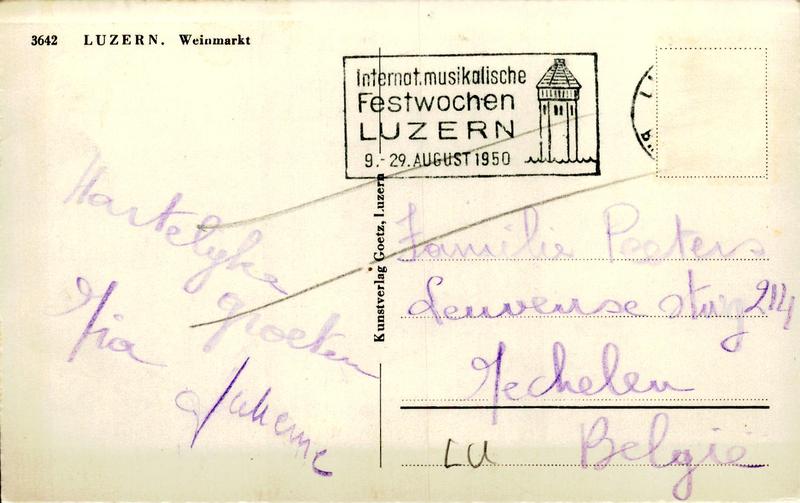 3642 LUZERN. Weinmarkt
Internat. musikalische
Festwochen
LUZERN
9.-29. AUGUST 1950
Kunstverlag Goetz, Luzern
Hartelyke
groeten
Mia
Familie Peeters
Leuvense stwg 214
Mechelen
LU België